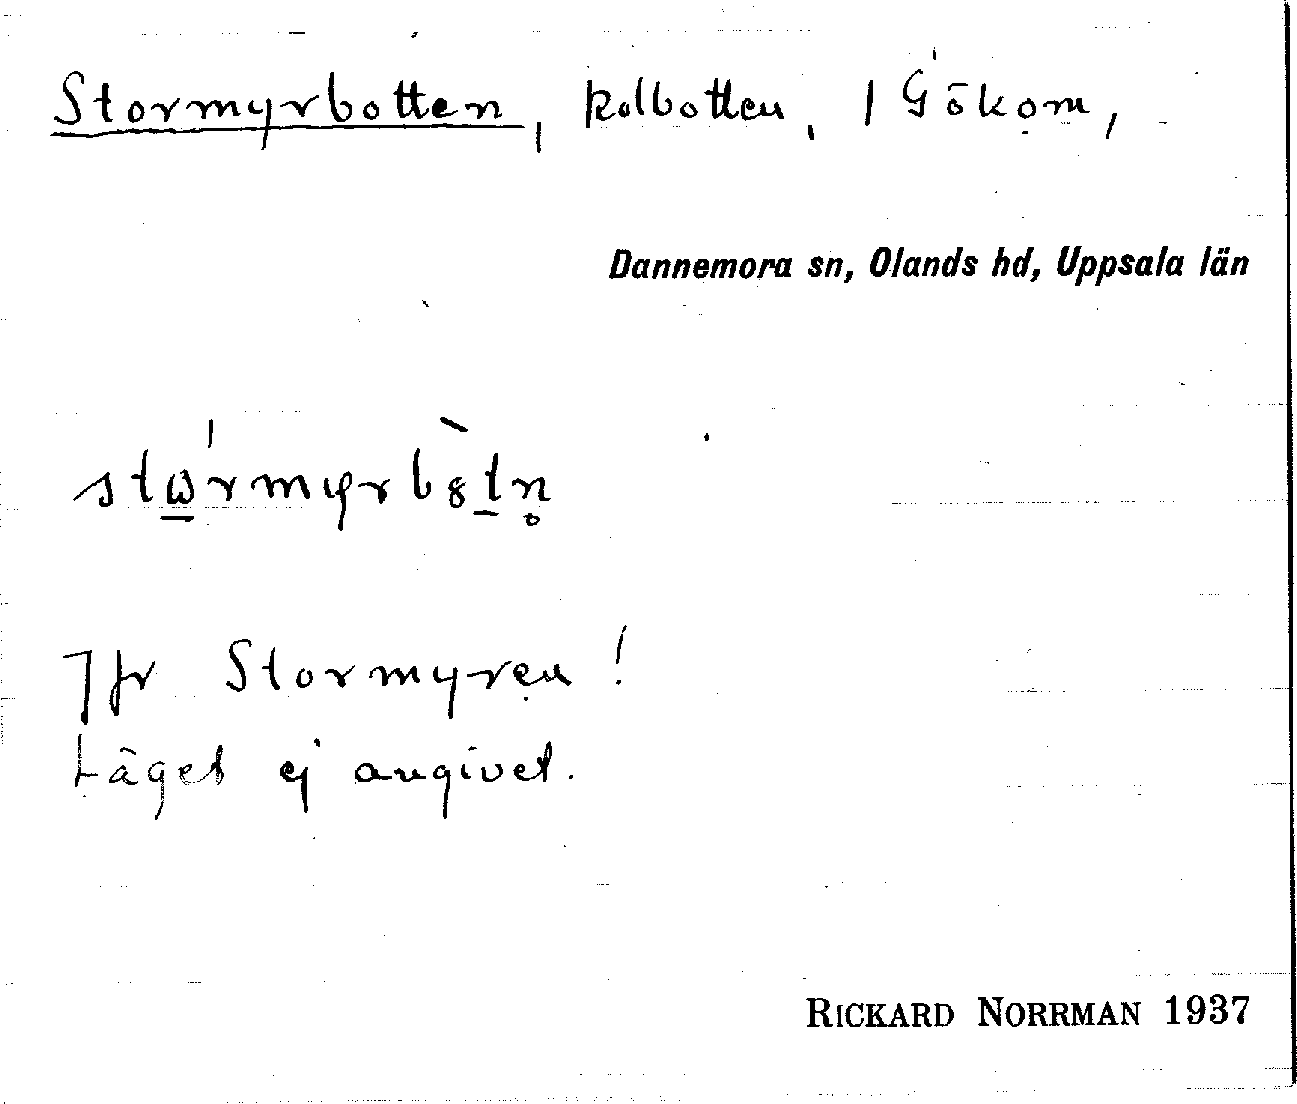 Stormyrbotten, kolbotten, / Gökom,
Dannemora sn, Olands hd, Uppsala län
Jfr Stormyren!
Läget ej angivet.
RICKARD NORRMAN 1937